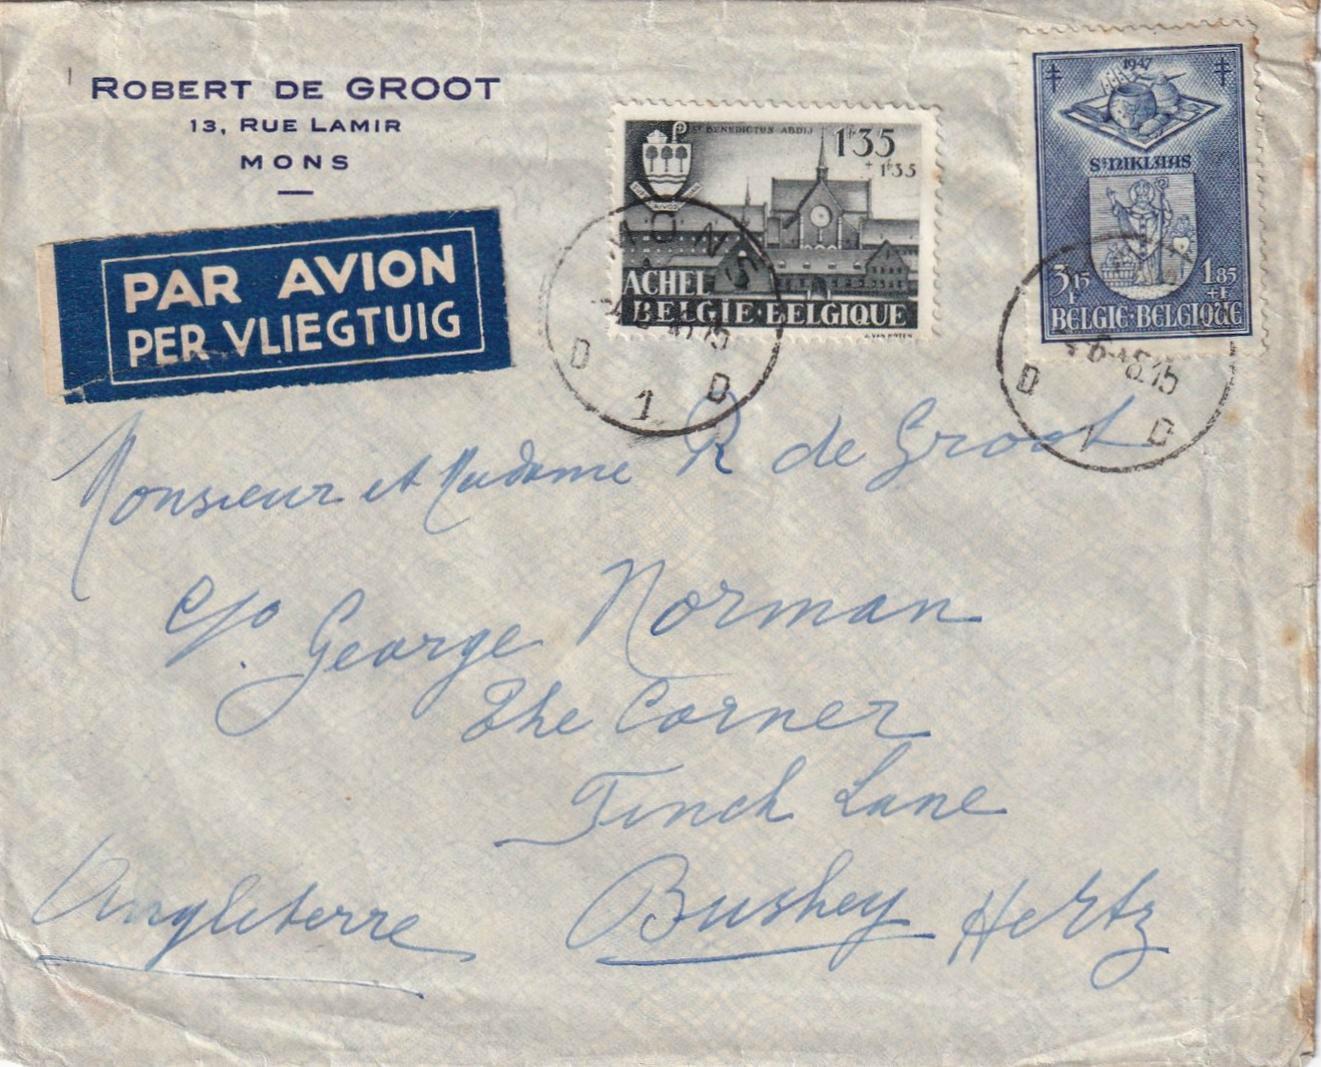 ROBERT DE GROOT
13, RUE LAMIR
MONS
PAR AVION
PER VLIEGTUIG
ST BENEDICTUS-ABDIJ
1F35
+1F35
ACHEL
BELGIE·BELGIQUE
A. VAN NOTEN
MONS
D 1 D
1947
ST NIKLAAS
3F15
1.85
+1F
BELGIE·BELGIQUE
15
D 1 D
Monsieur et Madame R de Groot
c/o. George Norman
The Corner
Finch Lane
Bushey Hertz
Angleterre